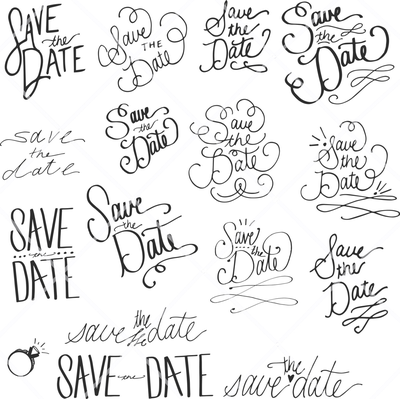 SAVE
the
DATE
Save
THE
Date
Save
the
Date
Save
the
Date
save
the
date
Save
the
Date
Save
the
Date
Save
the
Date
SAVE
DATE
Save
the
Date
Save
the
Date
Save
the
Date
save the date
SAVE the DATE
save the date